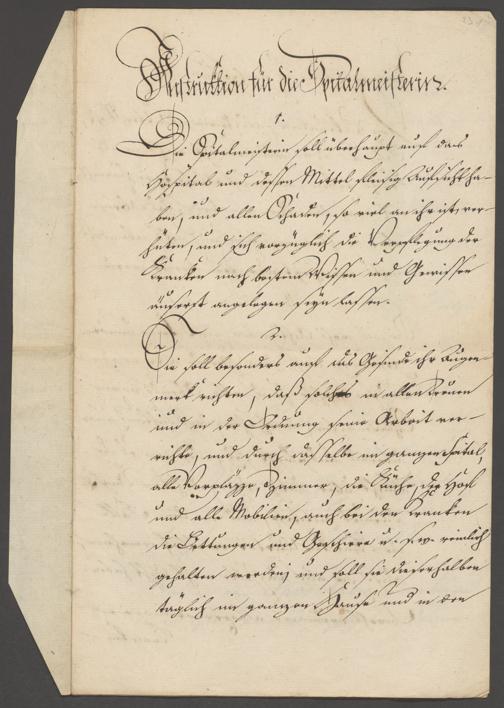 Instruktion für die Spitalmeisterin.
1.
Die Spitalmeisterin soll überhaupt auf das
Hospital und dessen Mittel fleisig Aufsicht ha-
ben, und allen Schaden, so viel an ihr ist, ver-
hüten, und sich vorzüglich die Verpflegung der
Kranken nach bestem Wissen und Gewissen
äuserst angelegen seyn lassen.
2.
Sie soll besonders auf das Gesinde ihr Augen-
merk richten, daß solches in allen Treuen
und in der Ordnung seine Arbeit ver-
richte, und durch dasselbe im ganzen Spital,
alle Vorpläzze, Zimmer, die Küche, der Hof
und alle Mobilien, auch bei den Kranken
die Bettungen und Geschirre u. s. w. reinlich
gehalten werden; und soll sie dieserhalben
täglich im ganzen Hause und in den